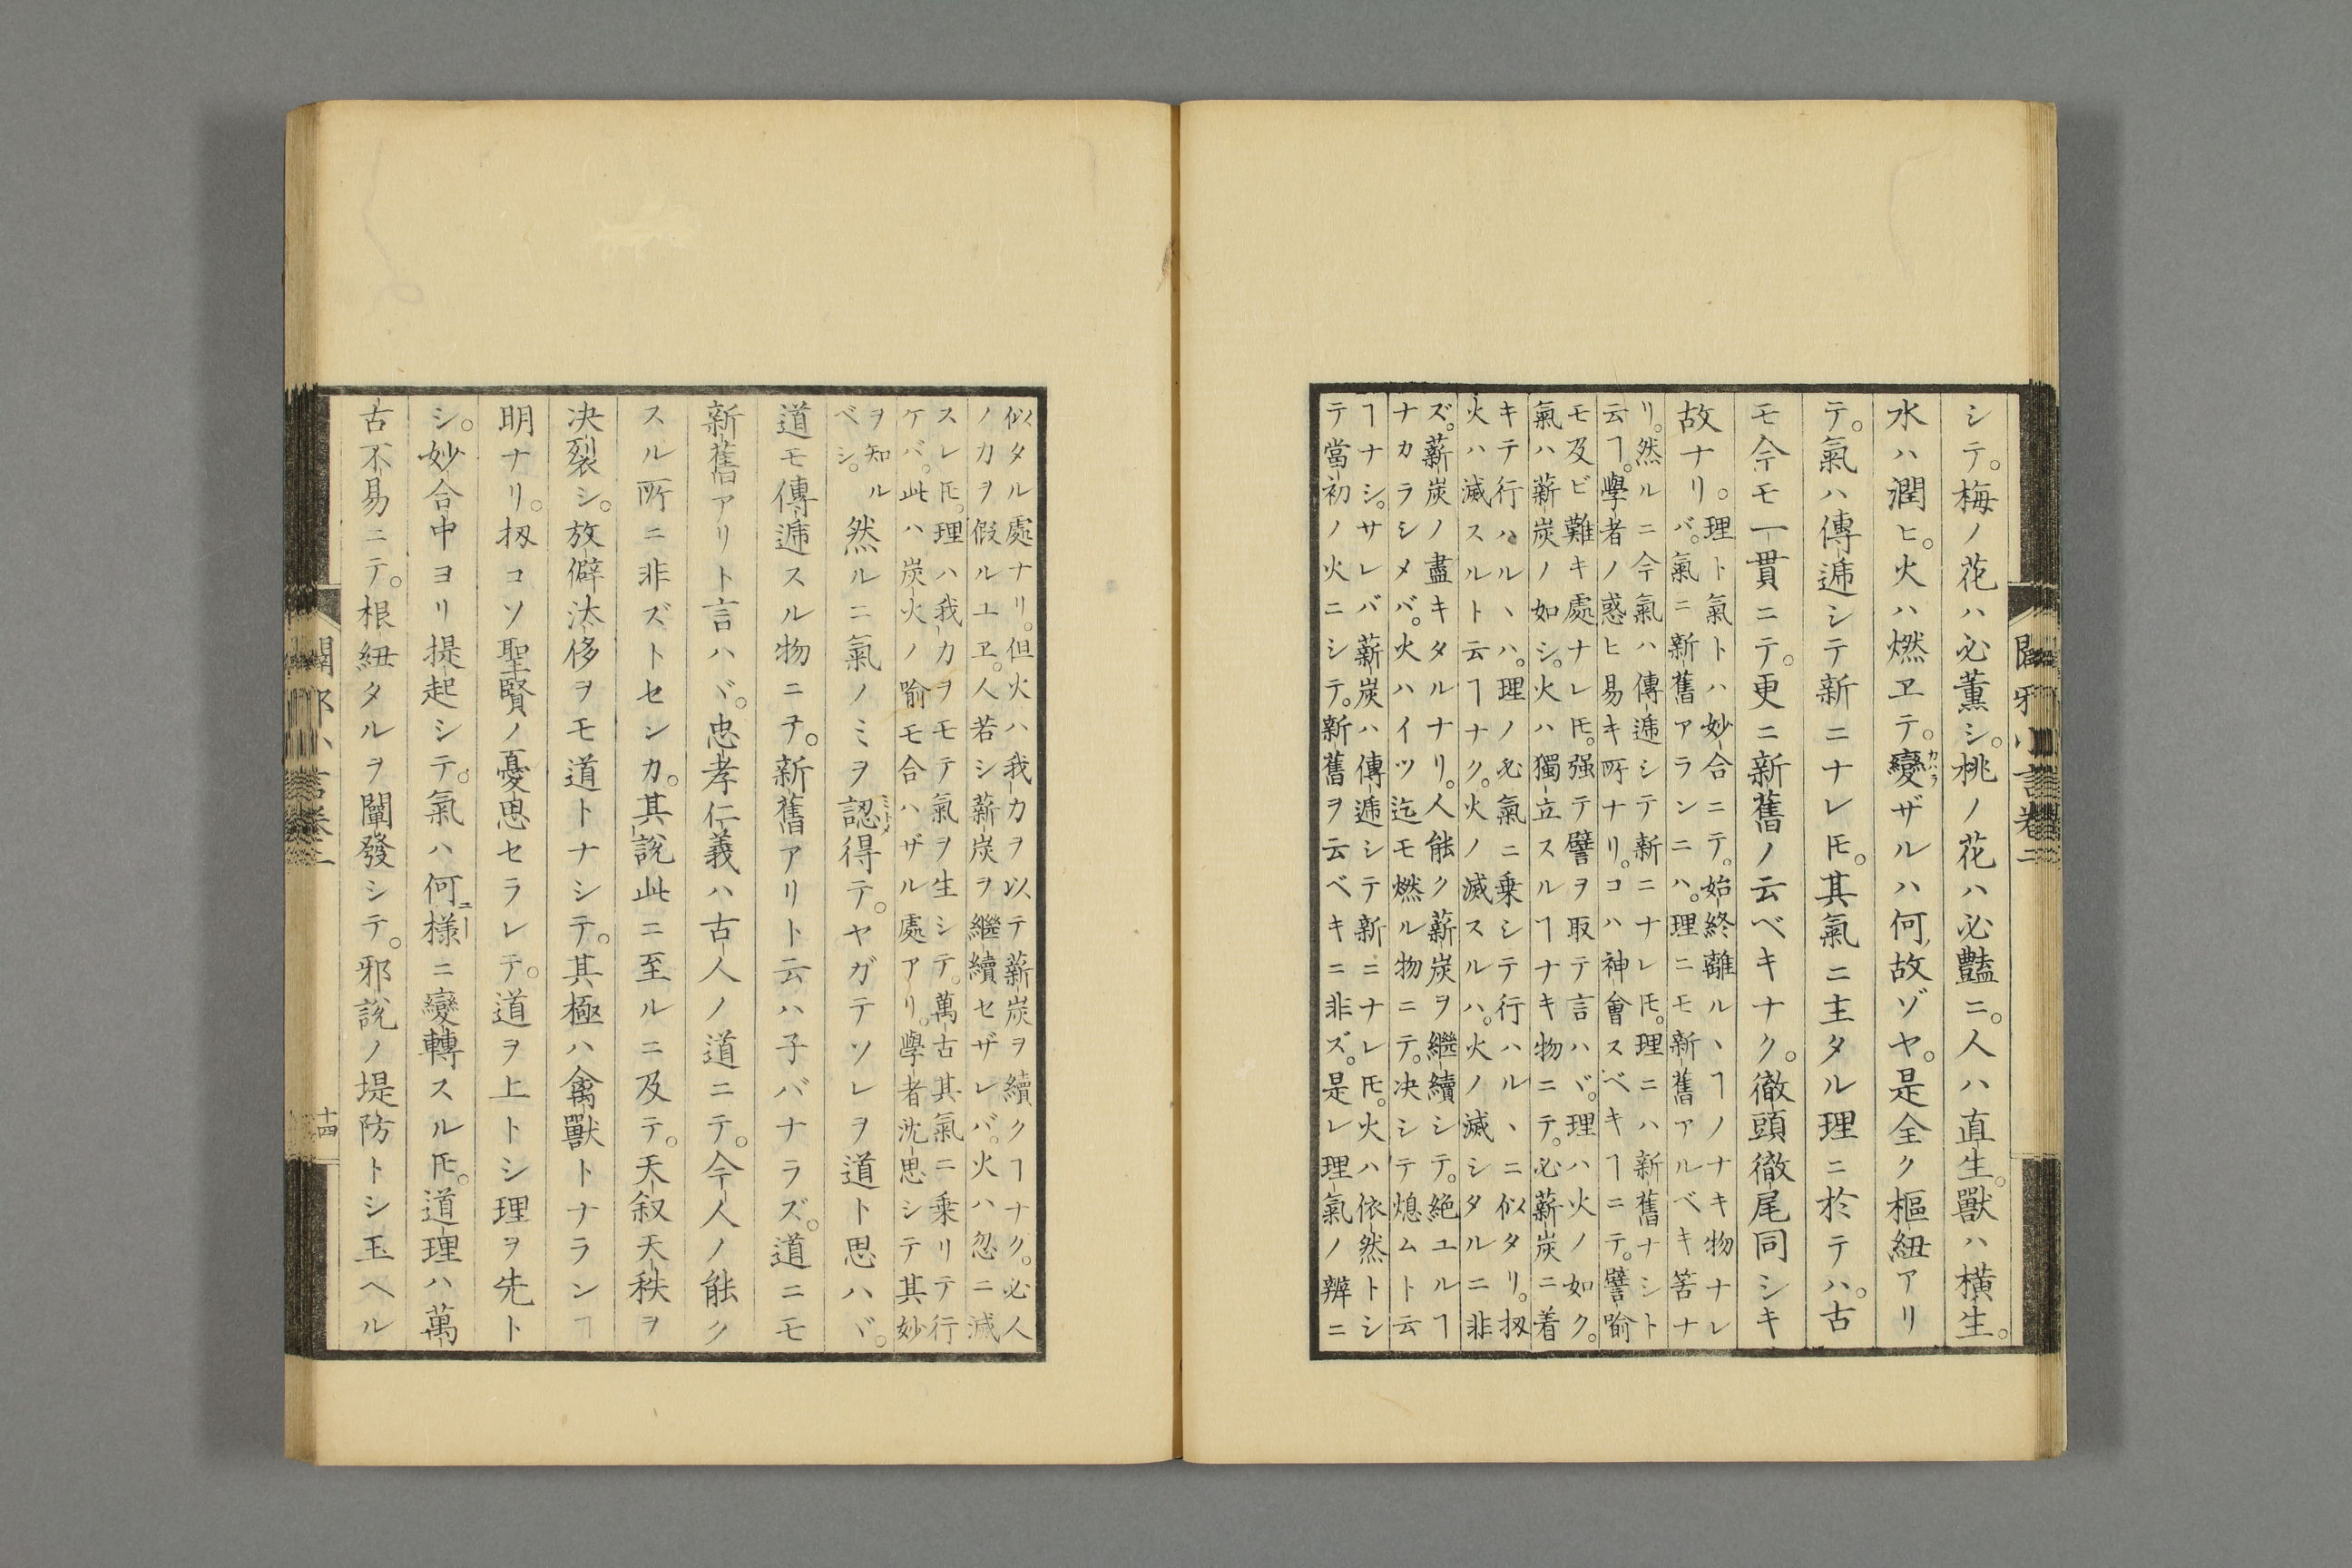 闢邪小言卷二
シテ。梅ノ花ハ必薫シ。桃ノ花ハ必豔ニ。人ハ直生。獸ハ橫生。
水ハ潤ヒ。火ハ燃ヱテ。變カハラザルハ何故ゾヤ。是全ク樞紐アリ
テ。氣ハ傳遞シテ新ニナレ𪜈。其氣ニ主タル理ニ於テハ。古
モ今モ一貫ニテ。更ニ新舊ノ云ベキナク。徹頭徹尾同シキ
故ナリ。理ト氣トハ妙合ニテ。始終離ルヽヿノナキ物ナレ
バ。氣ニ新舊アランニハ。理ニモ新舊アルベキ筈ナ
リ。然ルニ今氣ハ傳遞シテ新ニナレ𪜈。理ニハ新舊ナシト
云ヿ。學者ノ惑ヒ易キ所ナリ。コハ神會スベキヿニテ。譬喩
モ及ビ難キ處ナレ𪜈。强テ譬ヲ取テ言ハヾ。理ハ火ノ如ク。
氣ハ薪炭ノ如シ。火ハ獨立スルヿナキ物ニテ。必薪炭ニ着
キテ行ハルヽハ。理ノ必氣ニ乗シテ行ハルヽニ似タリ。扨
火ハ滅スルト云ヿナク。火ノ滅スルハ。火ノ滅シタルニ非
ズ。薪炭ノ盡キタルナリ。人能ク薪炭ヲ繼續シテ。絕ユルヿ
ナカラシメバ。火ハイツ迄モ燃ル物ニテ。决シテ熄ムト云
ヿナシ。サレバ薪炭ハ傳遞シテ新ニナレ𪜈。火ハ依然トシ
テ當初ノ火ニシテ。新舊ヲ云ベキニ非ズ。是レ理氣ノ辨ニ
似タル處ナリ。但火ハ我力ヲ以テ薪炭ヲ續クヿナク。必人
ノ力ヲ假ルユヱ。人若シ薪炭ヲ繼續セザレバ。火ハ忽ニ滅
スレ𪜈。理ハ我力ヲモテ氣ヲ生シテ。萬古其氣ニ乗リテ行
ケバ。此ハ炭火ノ喩モ合ハザル處アリ。學者沈思シテ其妙
ヲ知ル
ベシ。
然ルニ氣ノミヲ認得テ。ヤガテソレヲ道ト思ハヾ。
道モ傳遞スル物ニテ。新舊アリト云ハ子バナラズ。道ニモ
新舊アリト言ハヾ。忠孝仁義ハ古人ノ道ニテ。今人ノ能ク
スル所ニ非ズトセンカ。其說此ニ至ルニ及テ。天叙天秩ヲ
决裂シ。放僻汰侈ヲモ道トナシテ。其極ハ禽獸トナランヿ
明ナリ。扨コソ聖賢ノ憂思セラレテ。道ヲ上トシ理ヲ先ト
シ。妙合中ヨリ提起シテ。氣ハ何樣ニ變轉スル𪜈。道理ハ萬
古不易ニテ。根紐タルヲ闡發シテ。邪說ノ堤防トシ玉ヘル
十四